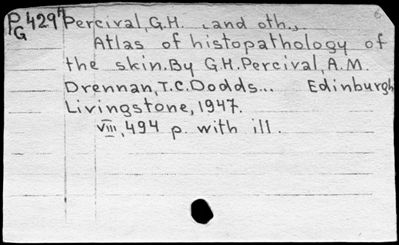 P/G 4294 Percival, G.H. and oth.
Atlas of histopathology of
the skin. By G.H. Percival, A.M.
Drennan, T.C. Dodds... Edinburgh
Livingstone, 1947.
VIII, 494 p. with ill.